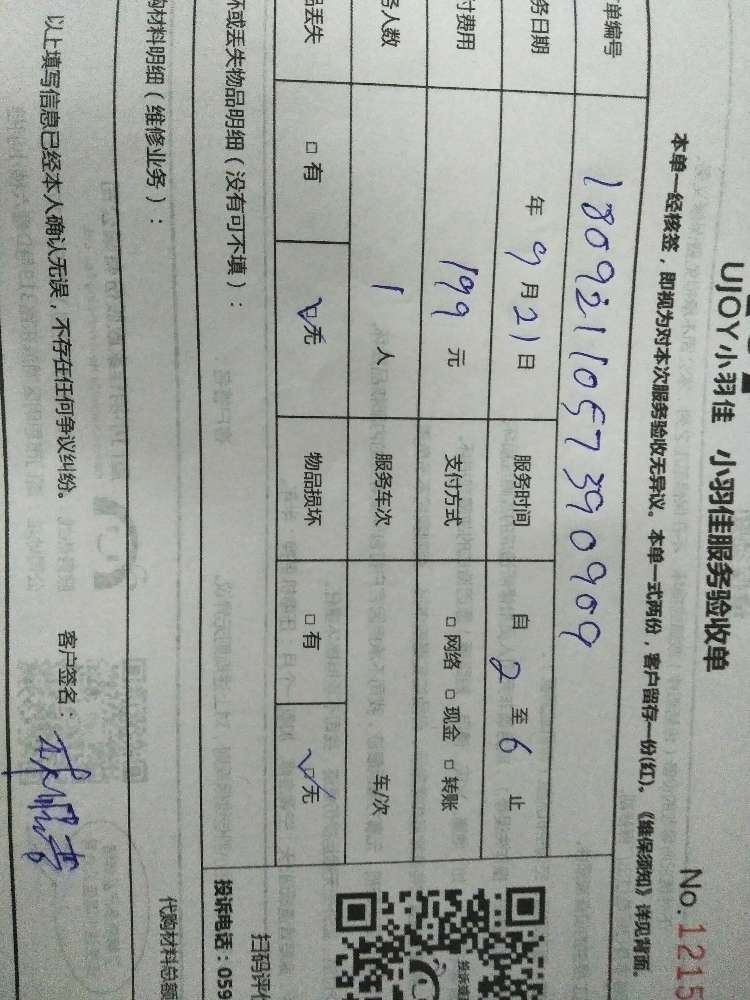 UJOY小羽佳 小羽佳服务验收单
No.1215
本单一经核签，即视为对本次服务验收无异议。本单一式两份，客户留存一份(红)。《维保须知》详见背面。
单编号 180921105739 0909
务日期 年 9 月 21 日 服务时间 自 2 至 6 止
付费用 199 元 支付方式 □ 网络 □ 现金 □ 转账
务人数 1 人 服务车次 车/次
品丢失 □ 有 □ 无 物品损坏 □ 有 □ 无
坏或丢失物品明细（没有可不填）：
扫码评价
投诉电话：059
购材料明细（维修业务）：
代购材料总额
以上填写信息已经本人确认无误，不存在任何争议纠纷。 客户签名：